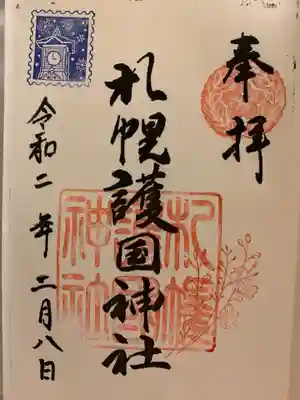 奉拝
札幌護国神社
札幌護国神社
令和二年二月八日